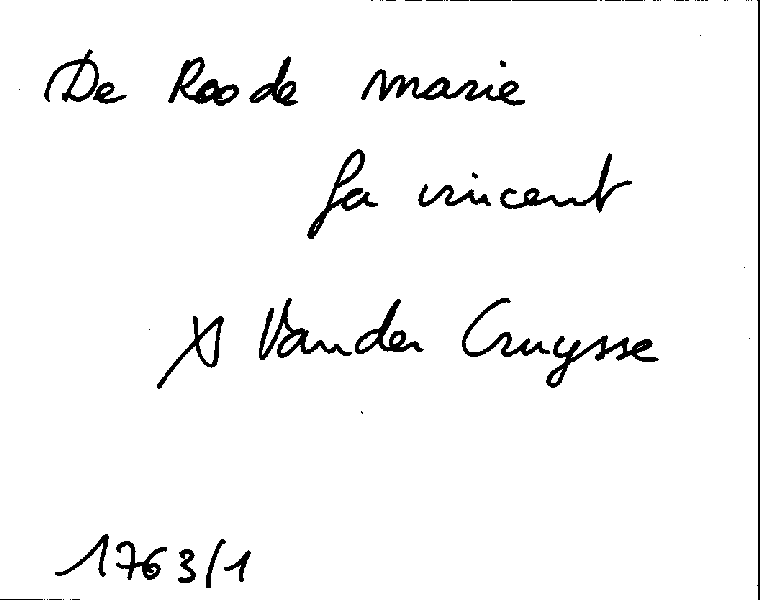 De Roode marie
fa vincent
X Vander Cruysse
1763/1